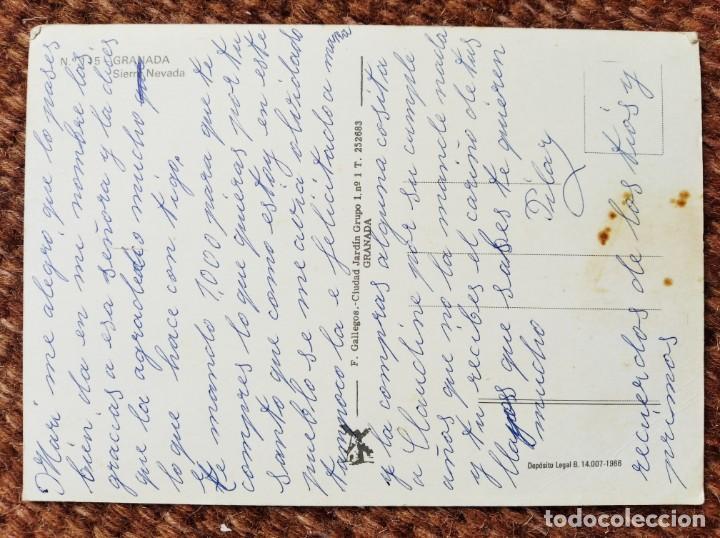 GRANADA
Sierra Nevada
Mari me alegro que lo pases
bien da en mi nombre las
gracias a esa señora y la dices
que la agradezco mucho
lo que hace con tigo.
te mando 1,000 para que te
compres lo que quieras por tu
santo que como estoy en este
pueblo se me avia olvidado
tampoco la e felicitado a mama
y la compras alguna cosita
a Claudine por su cumple
años que no la mande nada
y tu recibes el cariño de tus
que sabes te quieren
mucho Pilar
recuerdos de los tios y
primos
F. Gallegos.-Ciudad Jardín Grupo 1, nº 1 T. 252683
GRANADA
Depósito Legal B. 14.007-1966
todocoleccion
todocoleccion.net